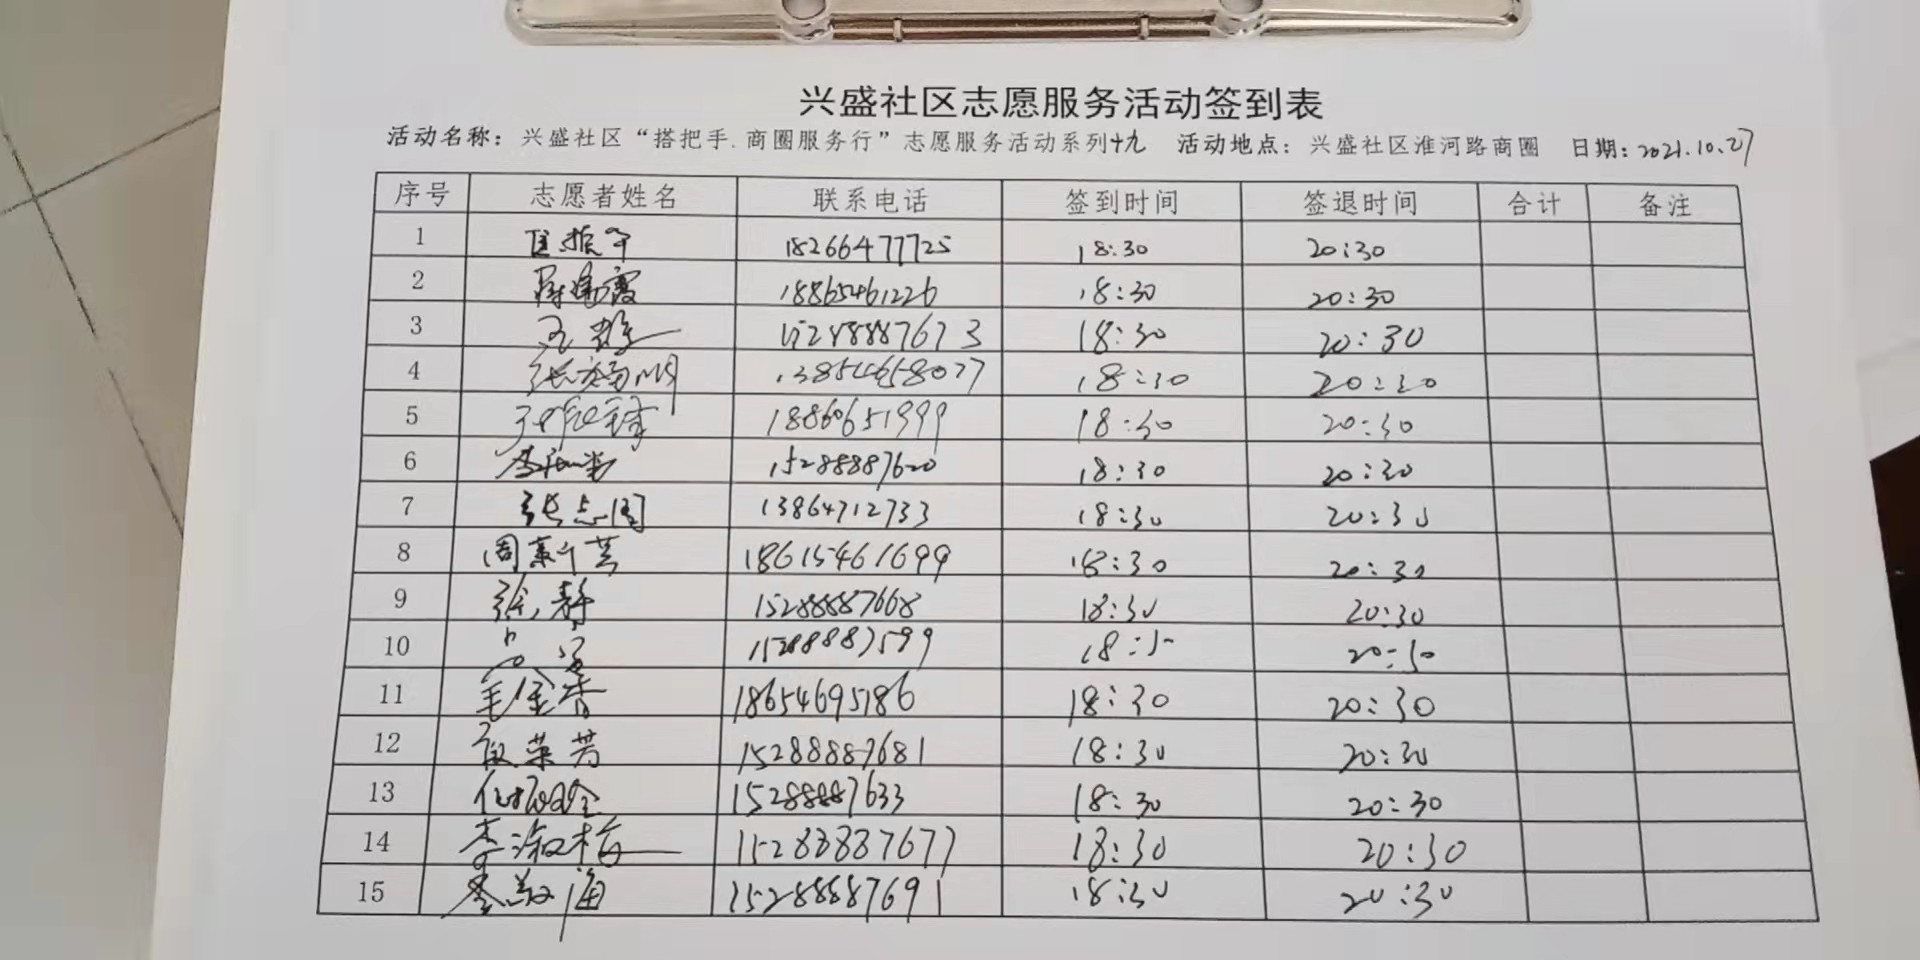 兴盛社区志愿服务活动签到表
活动名称：兴盛社区“搭把手.商圈服务行”志愿服务活动系列十九 活动地点：兴盛社区淮河路商圈 日期：2021.10.27
序号 志愿者姓名 联系电话 签到时间 签退时间 合计 备注
1 18266477725 18:30 20:30
2 18865461226 18:30 20:30
3 15288887673 18:30 20:30
4 13854658077 18:30 20:30
5 18860651999 18:30 20:30
6 15288887620 18:30 20:30
7 张志国 13864712733 18:30 20:30
8 周新芸 18615461699 18:30 20:30
9 张静 15288887668 18:30 20:30
10 15288887599 18:30 20:30
11 毛金香 18654695186 18:30 20:30
12 荣芳 15288887681 18:30 20:30
13 15288887633 18:30 20:30
14 李淑梅 15288887677 18:30 20:30
15 海 15288887691 18:30 20:30